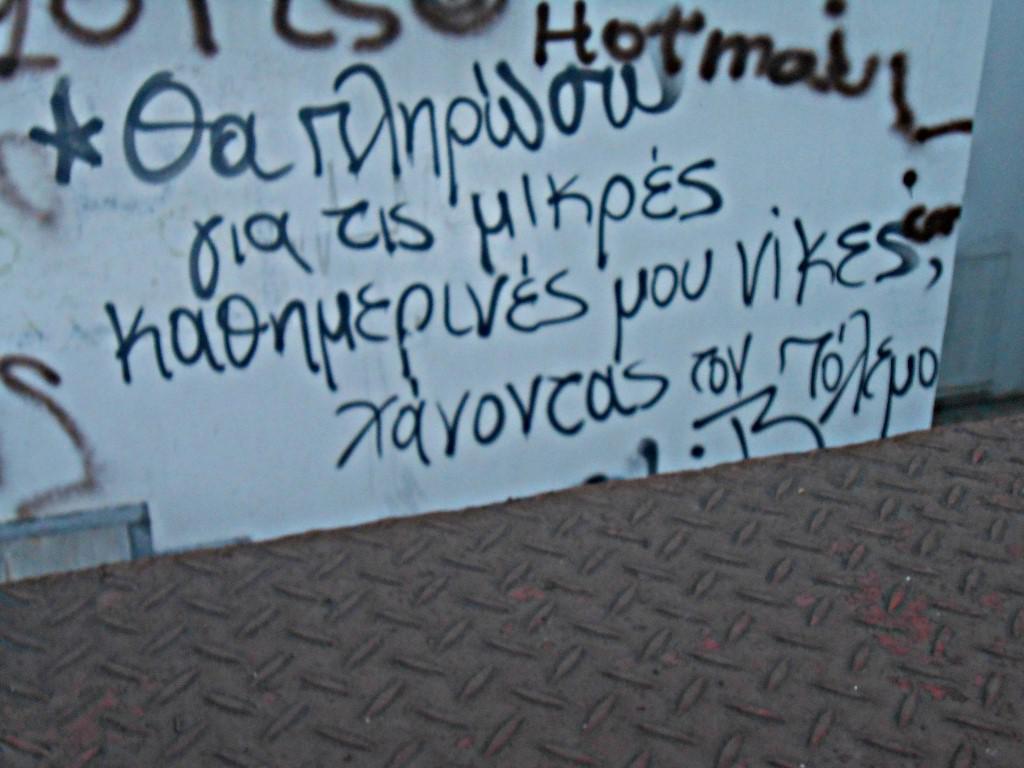 Hotmail
*Θα πληρώσω
για τις μικρές
καθημερινές μου νίκες,
χάνοντας τον πόλεμο